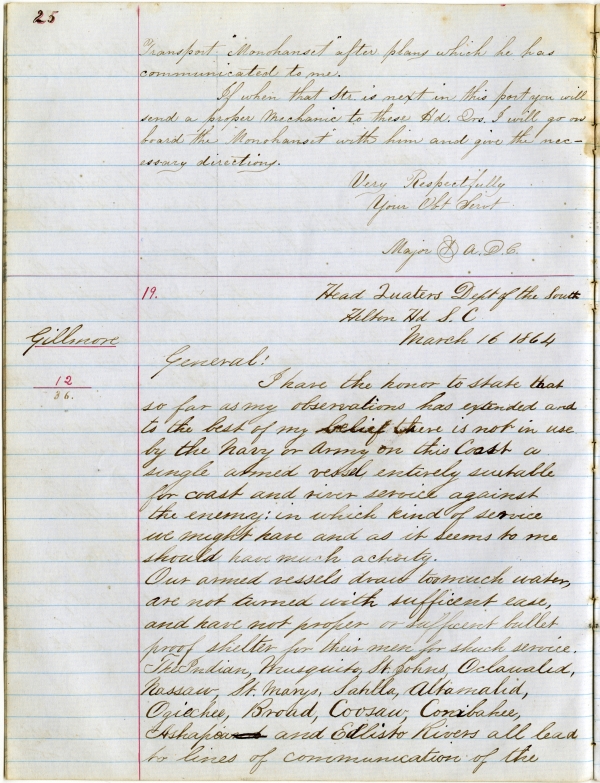 25
Transport "Monohanset" after plans which he has
communicated to me.
If when that Str. is next in this port you will
send a proper Mechanic to these Hd. Qrs. I will go on
board the Monohanset with him and give the nec-
essary directions.
Very Respectfully
Your Obt Servt
Major & A. D. C.
19.
Head Quaters Dept of the South
Hilton Hd S. C
March 16 1864
Gillmore
12
36.
General:
I have the honor to state that
so far as my observations has extended and
to the best of my belief there is not in use
by the Navy or Army on this Coast a
single armed vessel entirely suitable
for coast and river service against
the enemy; in which kind of service
we might have and as it seems to me
should have much activity.
Our armed vessels draw too much water,
are not turned with sufficent ease,
and have not proper or sufficent bullet
proof shelter for their men for shuch service.
The Indian, Musquito, St Johns, Oclawalid,
Nassaw, St. Marys, Satilla, Altamalid,
Ogiechee, Broad, Coosaw, Combahee,
and Edisto Rivers all lead
to lines of communication of the